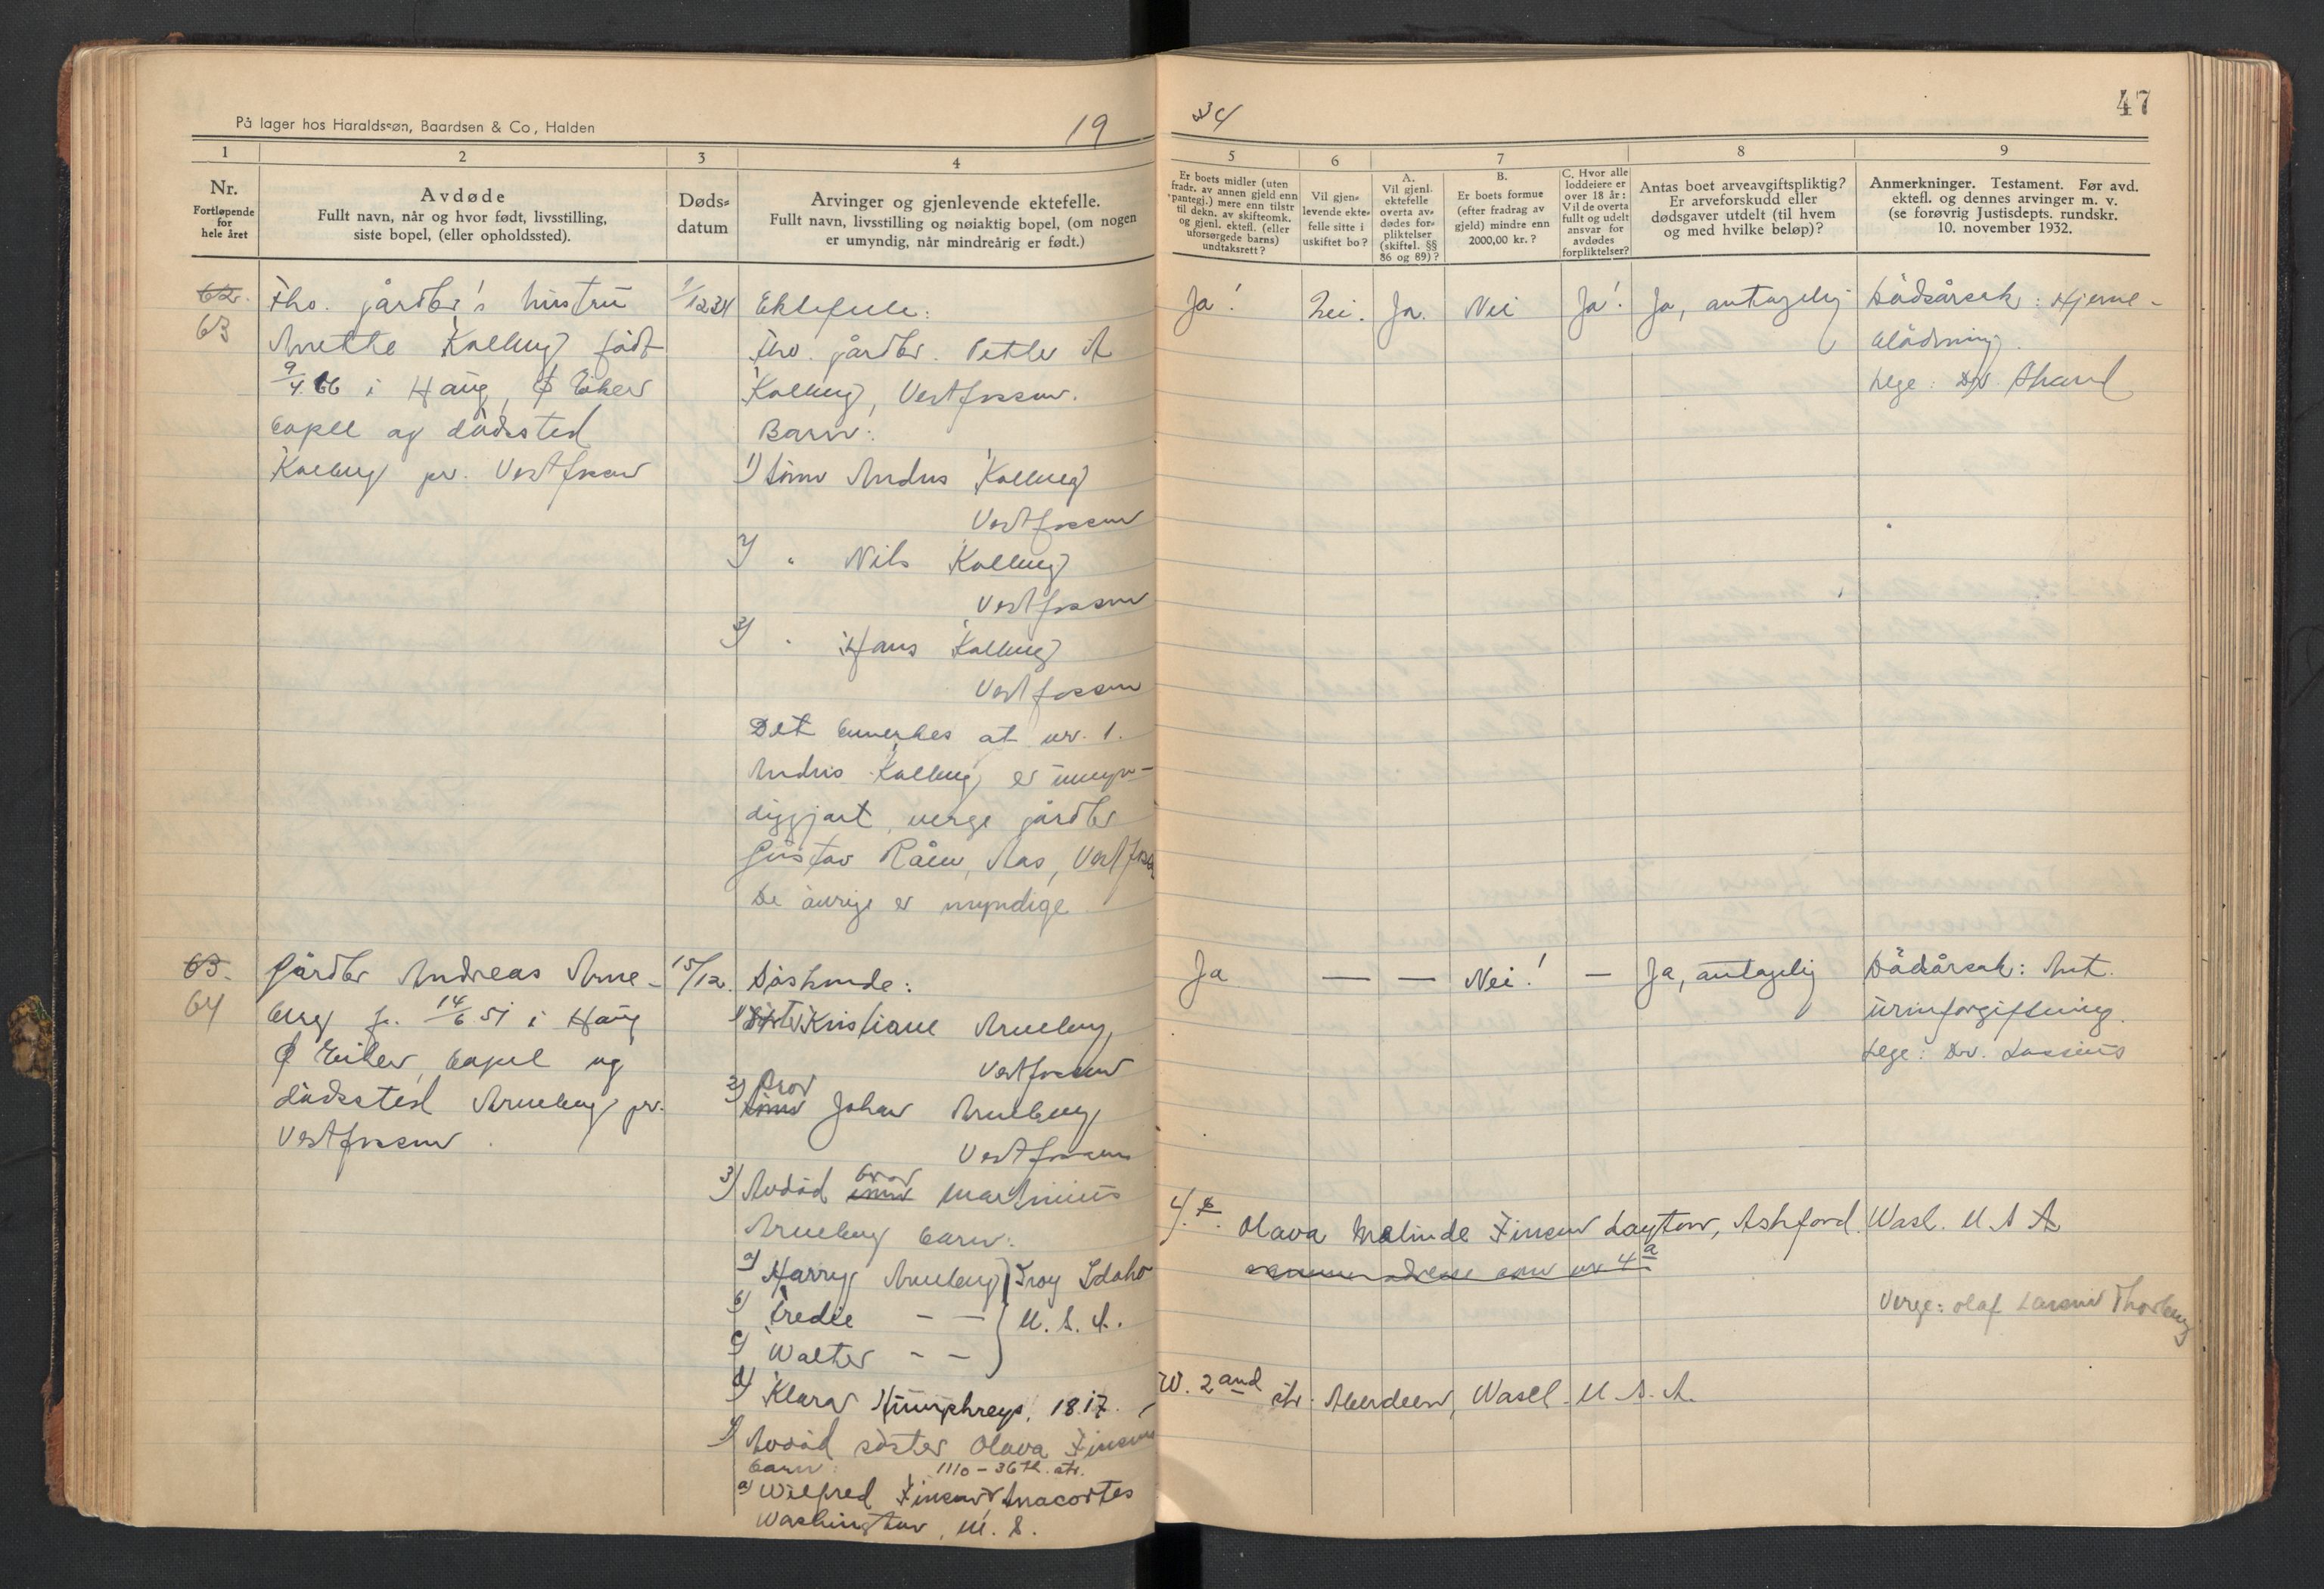 På lager hos Haraldssøn, Baardsen & Co, Halden
19
34
47
1
2
3
4
5
6
7
8
9
Nr.
Fortløpende
for
hele året
Avdøde
Fullt navn, når og hvor født, livsstilling,
siste bopel, (eller opholdssted).
Døds-
datum
Arvinger og gjenlevende ektefelle.
Fullt navn, livsstilling og nøiaktig bopel, (om nogen
er umyndig, når mindreårig er født.)
Er boets midler (uten
fradr. av annen gjeld enn
pantegj.) mere enn tilstr
til dekn. av skifteomk.
og gjenl. ektefl. (eller
uforsørgede barns)
undtaksrett?
Vil gjen-
levende ekte-
felle sitte i
uskiftet bo?
A.
Vil gjenl.
ektefelle
overta av-
dødes for-
pliktelser
(skiftel. §§
86 og 89)?
B.
Er boets formue
(efter fradrag av
gjeld) mindre enn
2000,00 kr.?
C. Hvor alle
loddeiere er
over 18 år:
Vil de overta
fullt og udelt
ansvar for
avdødes
forpliktelser?
Antas boet arveavgiftspliktig?
Er arveforskudd eller
dødsgaver utdelt (til hvem
og med hvilke beløp)?
Anmerkninger. Testament. Før avd.
ektefl. og dennes arvinger m. v.
(se forøvrig Justisdepts. rundskr.
10. november 1932.
62.
63
Fhv. gårdbr's hustru
Anette Kolberg født
9/4.66 i Haug, Ø Eiker
bopel og dødssted
Kolberg pr. Vestfossen
1/12 34
Ektefelle:
Fhv. gårdbr. Petter A
Kolberg, Vestfossen.
Barn:
1) Sønn Anders Kolberg
Vestfossen
2) " Nils Kolberg
Vestfossen
3) " Hans Kolberg
Vestfossen
Det bemerkes at nr. 1.
Anders Kolberg er umyn-
diggjort, verge gårdbr
Gustav Råen, Aas, Vestfossen
De øvrige er myndige
Ja!
Nei.
Ja.
Nei
Ja!
Ja, antagelig
Dødsårsak: Hjerne-
blødning.
Lege: Dr.
63.
64
Gårdbr Andreas Arne-
berg f. 14/6 51 i Haug
Ø Eiker, bopel og
dødssted Arneberg pr.
Vestfossen.
15/12.
Søskende:
1) Søster Kristiane Arneberg,
Vestfossen
2) Bror
sønn Johan Arneberg,
Vestfossen
3) Avdød sønn bror Martinius
Arneberg barn:
a) Harry Arneberg } Troy Idaho
b) Fredie — — } U. S. A.
c) Walter — —
d) Klara Humphreys, 1817.
4) Avdød søster Olava Finsen
barn: 1110 - 36th. str.
a) Wilfred Finsen Anacortes
Washington, U. S.
Ja
— —
Nei!
—
Ja, antagelig
Dødsårsak: Ant.
urinforgiftning.
Lege: Dr. Lassius
4. b. Olava Malinde Finsen Layton, Ashford. Wash. U S A
samme adresse som nr 4 a
Verge: Olaf Larsen Thorberg
W. 2and str. Aberdeen, Wash. U. S. A.